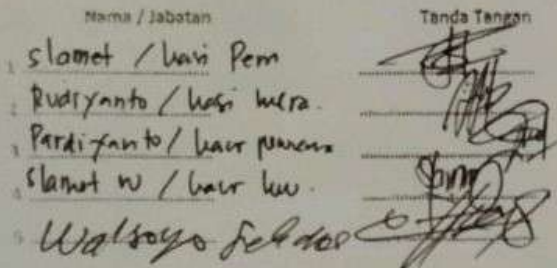 Nama / Jabatan Tanda Tangan
1 Slamet / kasi Pem
2 Rudiyanto / kasi kesra.
3 Pardiyanto / kaur
4 Slamet W / kaur keu.
5 Waluyo Sekdes